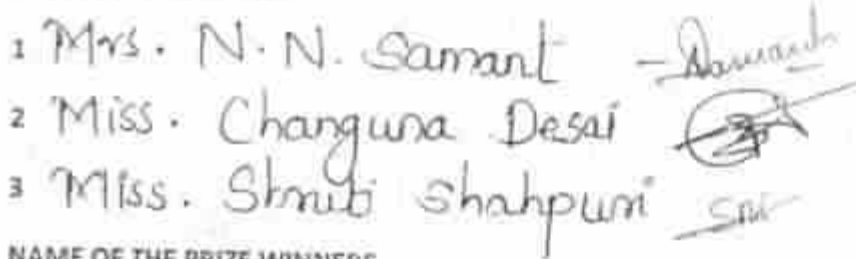 1 Mrs. N. N. Samant - Samant
2 Miss. Changuna Desai
3 Miss. Shruti Shahpuri
NAME OF THE PRIZE WINNERS